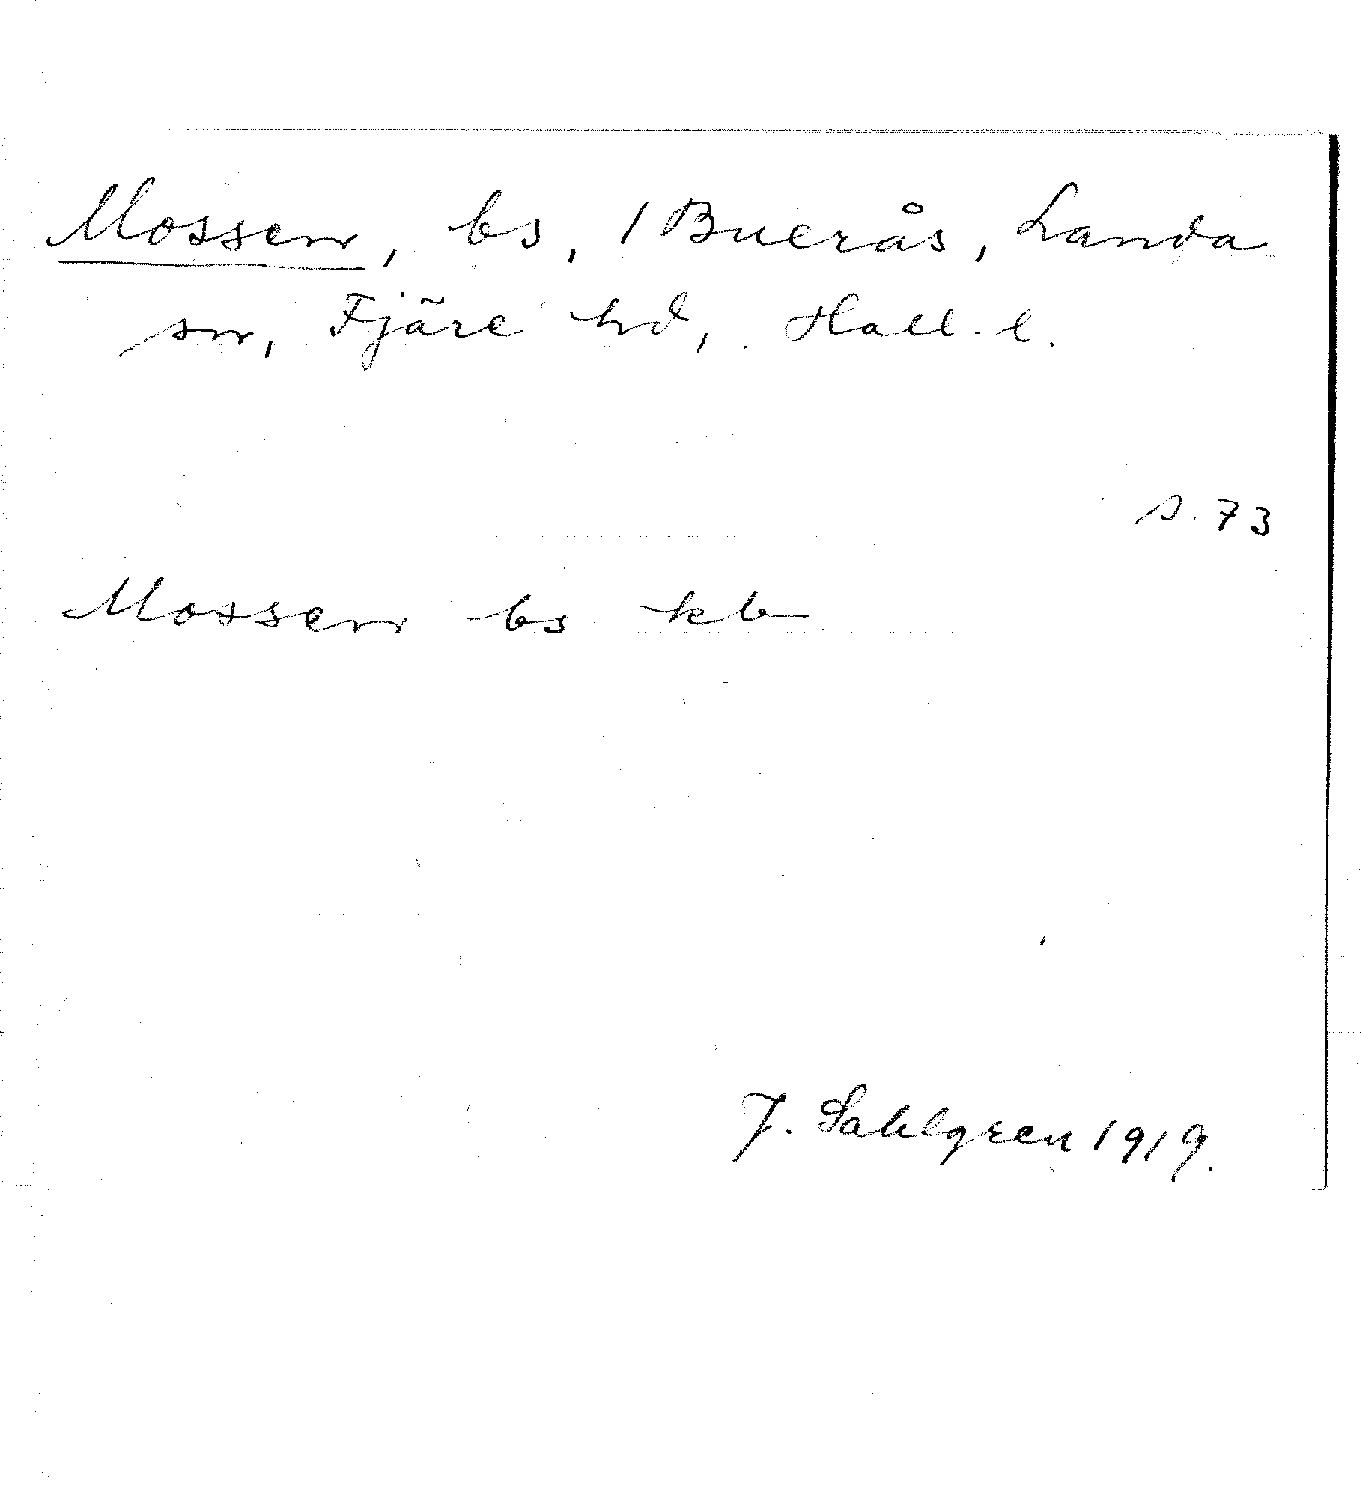 Mossen, bs, 1 Buerås, Landa
sn, Fjäre hd, Hall. l.
s. 73
Mossen bs kb
J. Sahlgren 1919.